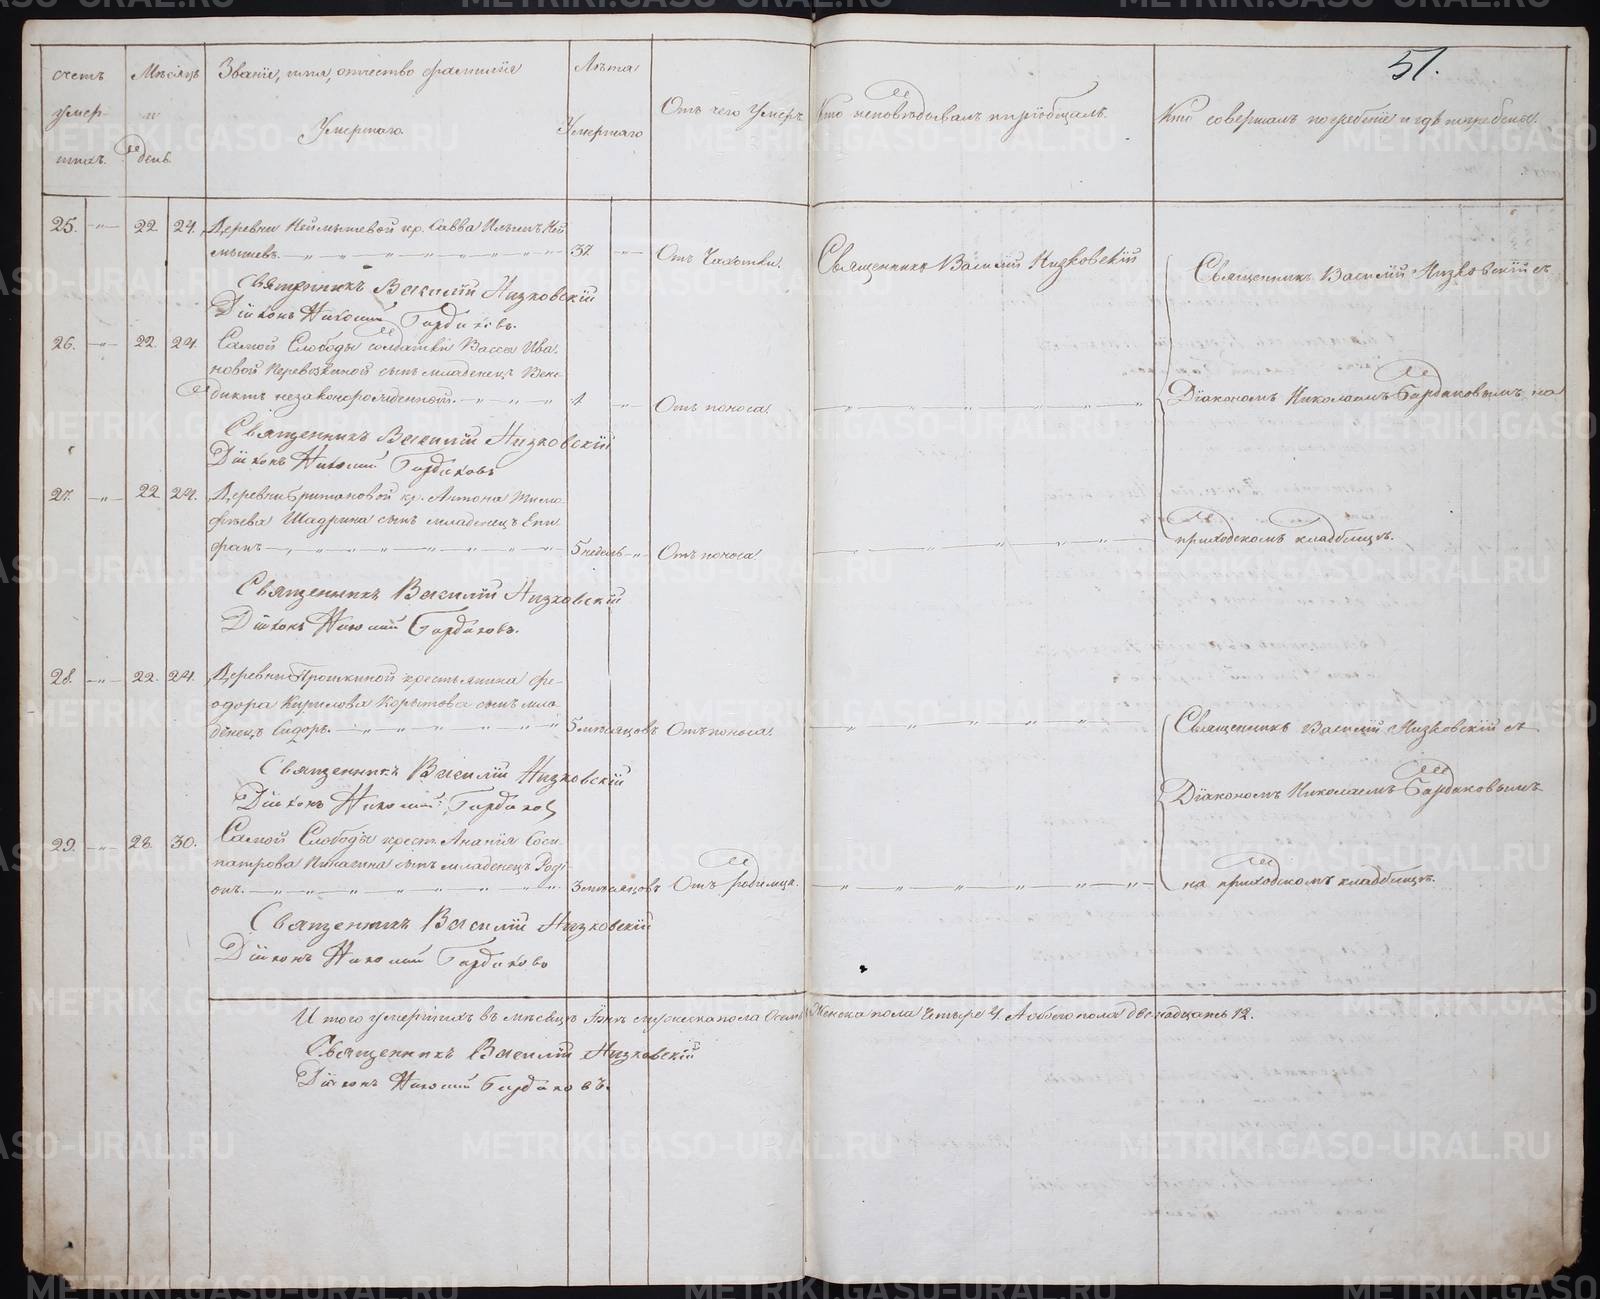 51.
Счетъ умер-шихъ.
Мѣсяцъ и день.
Званіе, имя, отчество фамилія Умершаго.
Лѣта Умершаго
Отъ чего Умеръ
Кто исповѣдывалъ и пріобщалъ.
Кто совершалъ погребеніе и гдѣ погребены.
25. 22 24. Деревни Кеймышевой кр. Савва Ильинъ Кей-
мышевъ. 37 Отъ Чахотки. Священникъ Василій Низковскій
Священникъ Василій Низковскій съ
Священникъ Василій Низковскій
Діаконъ Николай Бардаковъ.
26. 22. 24. Самой Слободы солдатки Вассы Ива-
новой сынъ младенецъ Вене-
диктъ незаконорожденной. 1 Отъ поноса. Діакономъ Николаемъ Бардаковымъ на
Священникъ Василій Низковскій
Діаконъ Николай Бардаковъ
27. 22 24. Деревни кр. Антона Тимо-
фѣева Шадрина сынъ младенецъ Епи-
фанъ 5 недель Отъ поноса приходскомъ кладбищѣ.
Священникъ Василій Низковскій
Діаконъ Николай Бардаковъ.
28. 22. 24. Деревни Прошкиной крестьянина Фе-
одора Кирилова Корытова сынъ мла-
денецъ Сидоръ. 5 мѣсяцовъ Отъ поноса. Священникъ Василій Низковскій съ
Священникъ Василій Низковскій
Діаконъ Николай Бардаков
Діакономъ Николаемъ Бардаковымъ
29. 28. 30. Самой Слободы крест. Ананія Соси-
патрова сынъ младенецъ Роді-
онъ. 3 мѣсяцовъ Отъ родимца. на приходскомъ кладбищѣ.
Священникъ Василій Низковскій
Діаконъ Николай Бардаковъ
Итого умершихъ въ мѣсяцѣ Іюнѣ мужеска пола Осемь Женска пола Четыре 4. А обоего пола двенадцать 12.
Священникъ Василій Низковскій
Діаконъ Николай Бардаковъ.
METRIKI.GASO-URAL.RU